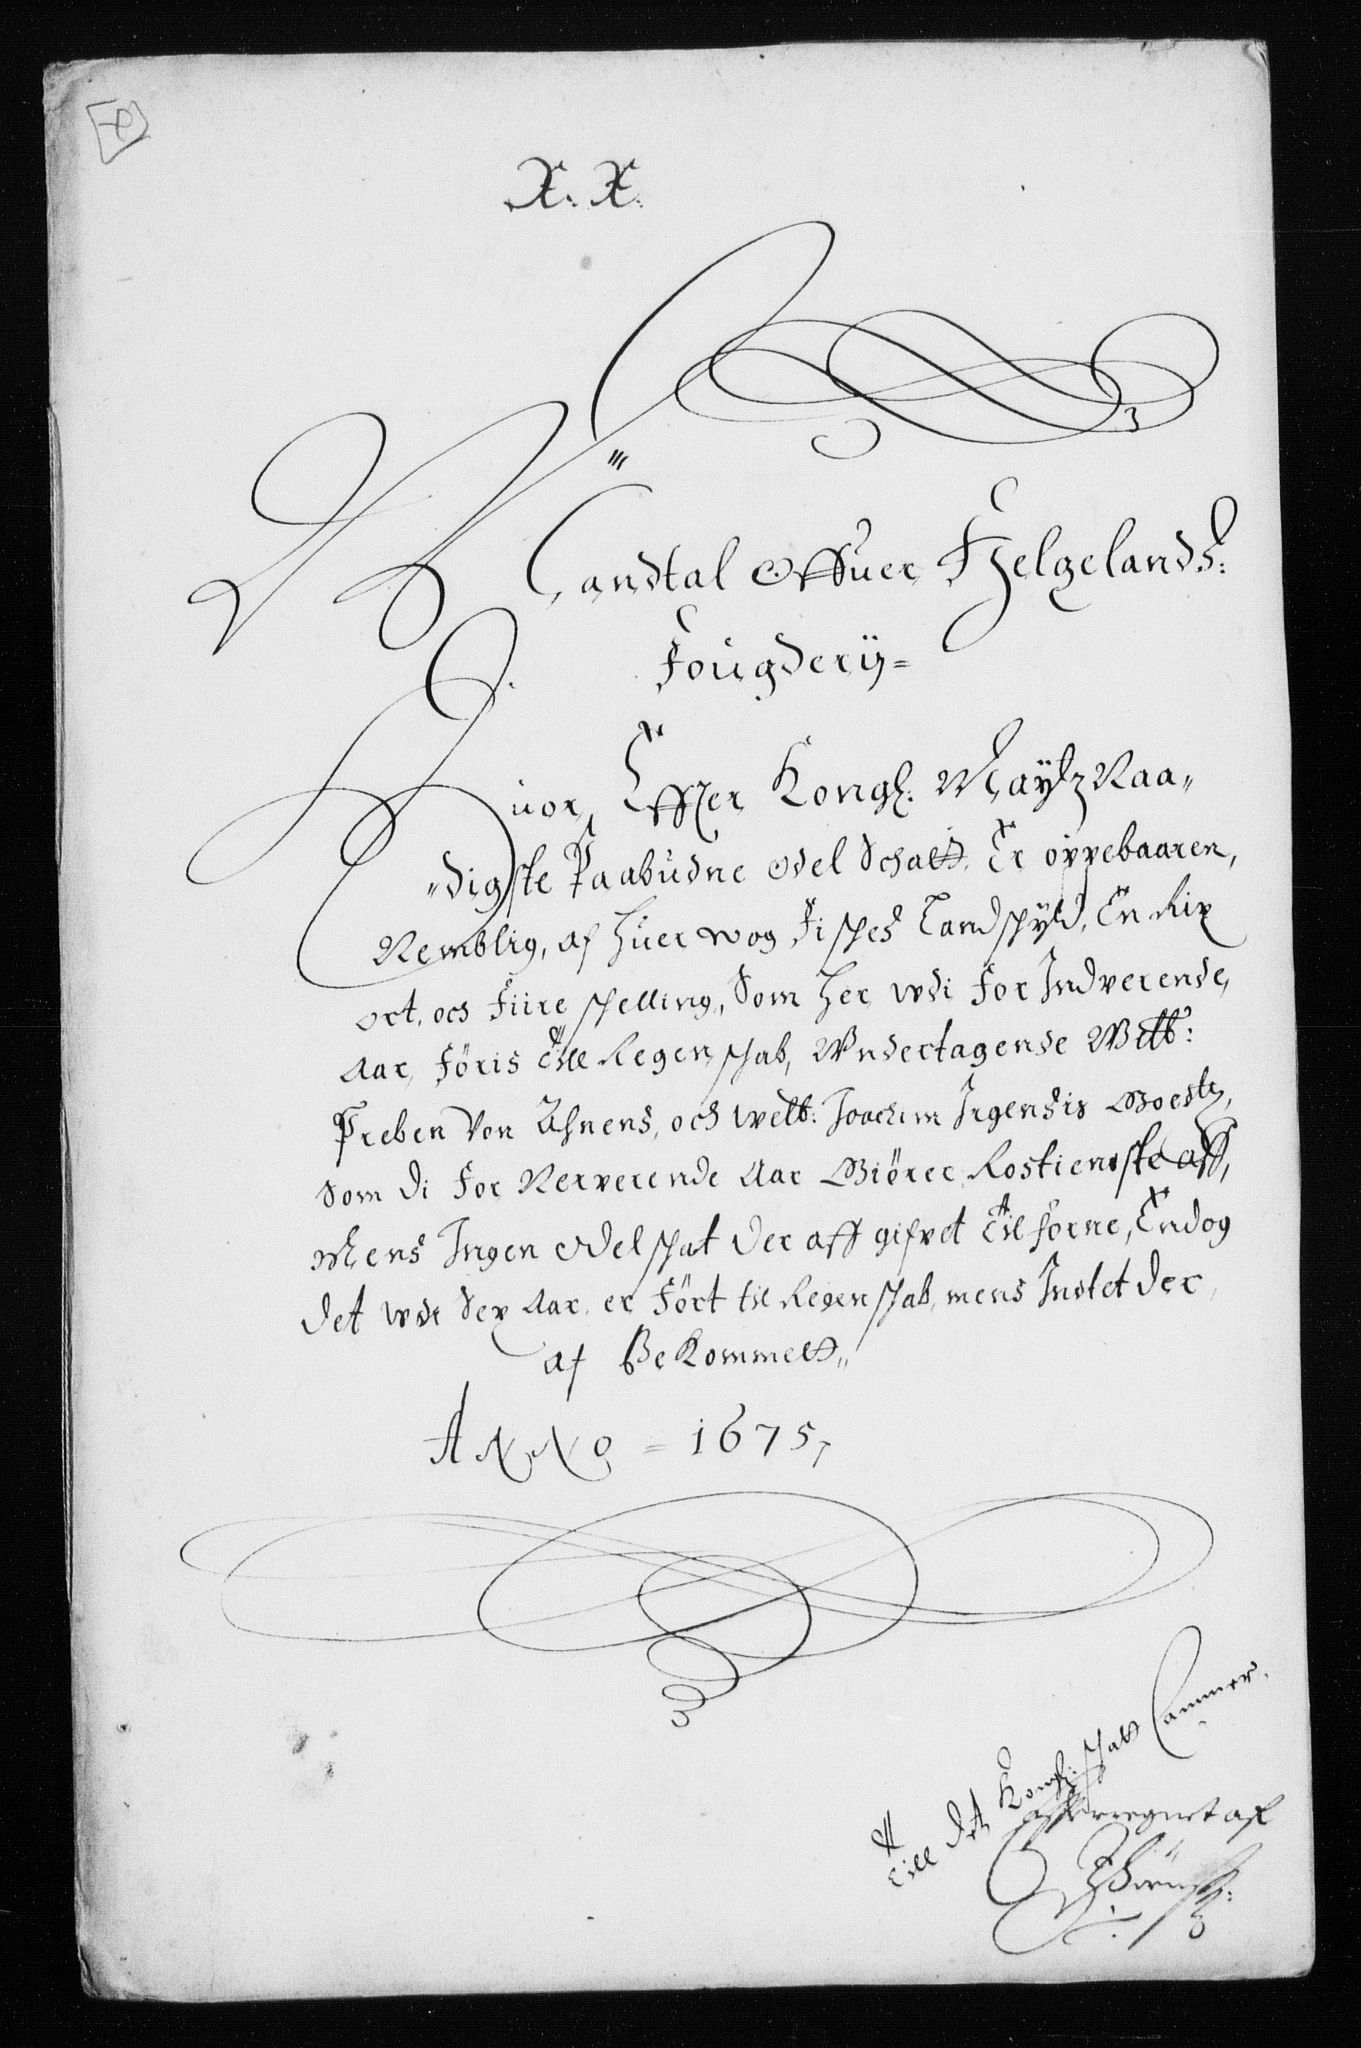 X. X.
Landtal Offuer Helgelands:
Fougderij=
Huor Effter Kongl: Maytz Naa„
„digste Paabudne Odel Schatt, Er oppebaaren,
Nemblig, af huer wog Fisches Landschyld, En Rix
ort, och Fiire schelling, Som her udi For Indverende,
Aar, Föris Till Regenschab, Undertagende Welb:
Preben Von Ahnens, och Welb: Joachim Irgensis Goedtz,
Som di For Nerverende Aar Giörer Rostieniste aff,
Mens Ingen Odelschat der aff gifvet Tilforne, Endog
det udi Sex Aar er Fört til Regenschab, mens Intet der
af Bekommett„
ANNO = 1675,
Till det Kongl: Schatt Cammer,
offuerregnet aff